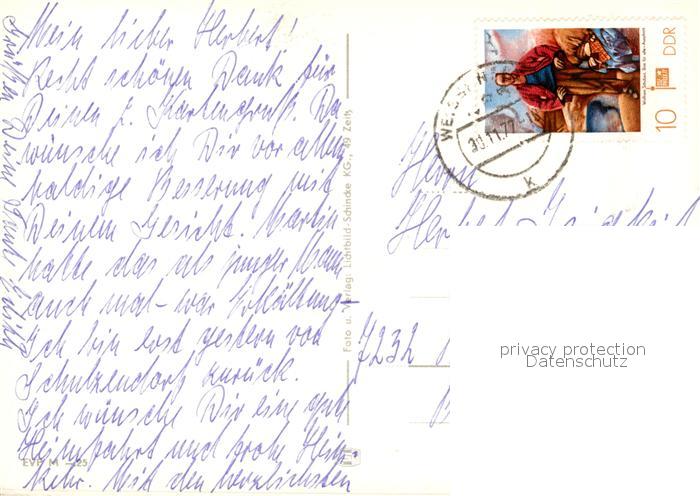 Mein lieber Herbert!
Recht schönen Dank für
Deinen l. Kartengruß. Da
wünsche ich Dir vor allem
baldige Besserung mit
Deinem Gesicht. Martin
hatte das als junger Mann
auch mal - war Erkältung -
Ich bin erst gestern von
Schulzendorf zurück.
Ich wünsche Dir eine gute
Heimfahrt und frohe Heim-
kehr. Mit den herzlichsten
Grüßen Deine Tante
Foto u. Verlag: Lichtbild-Schincke KG., 49 Zeitz
EVP M -,25
DDR
10
30.11.77
k
Herrn
7232
privacy protection
Datenschutz